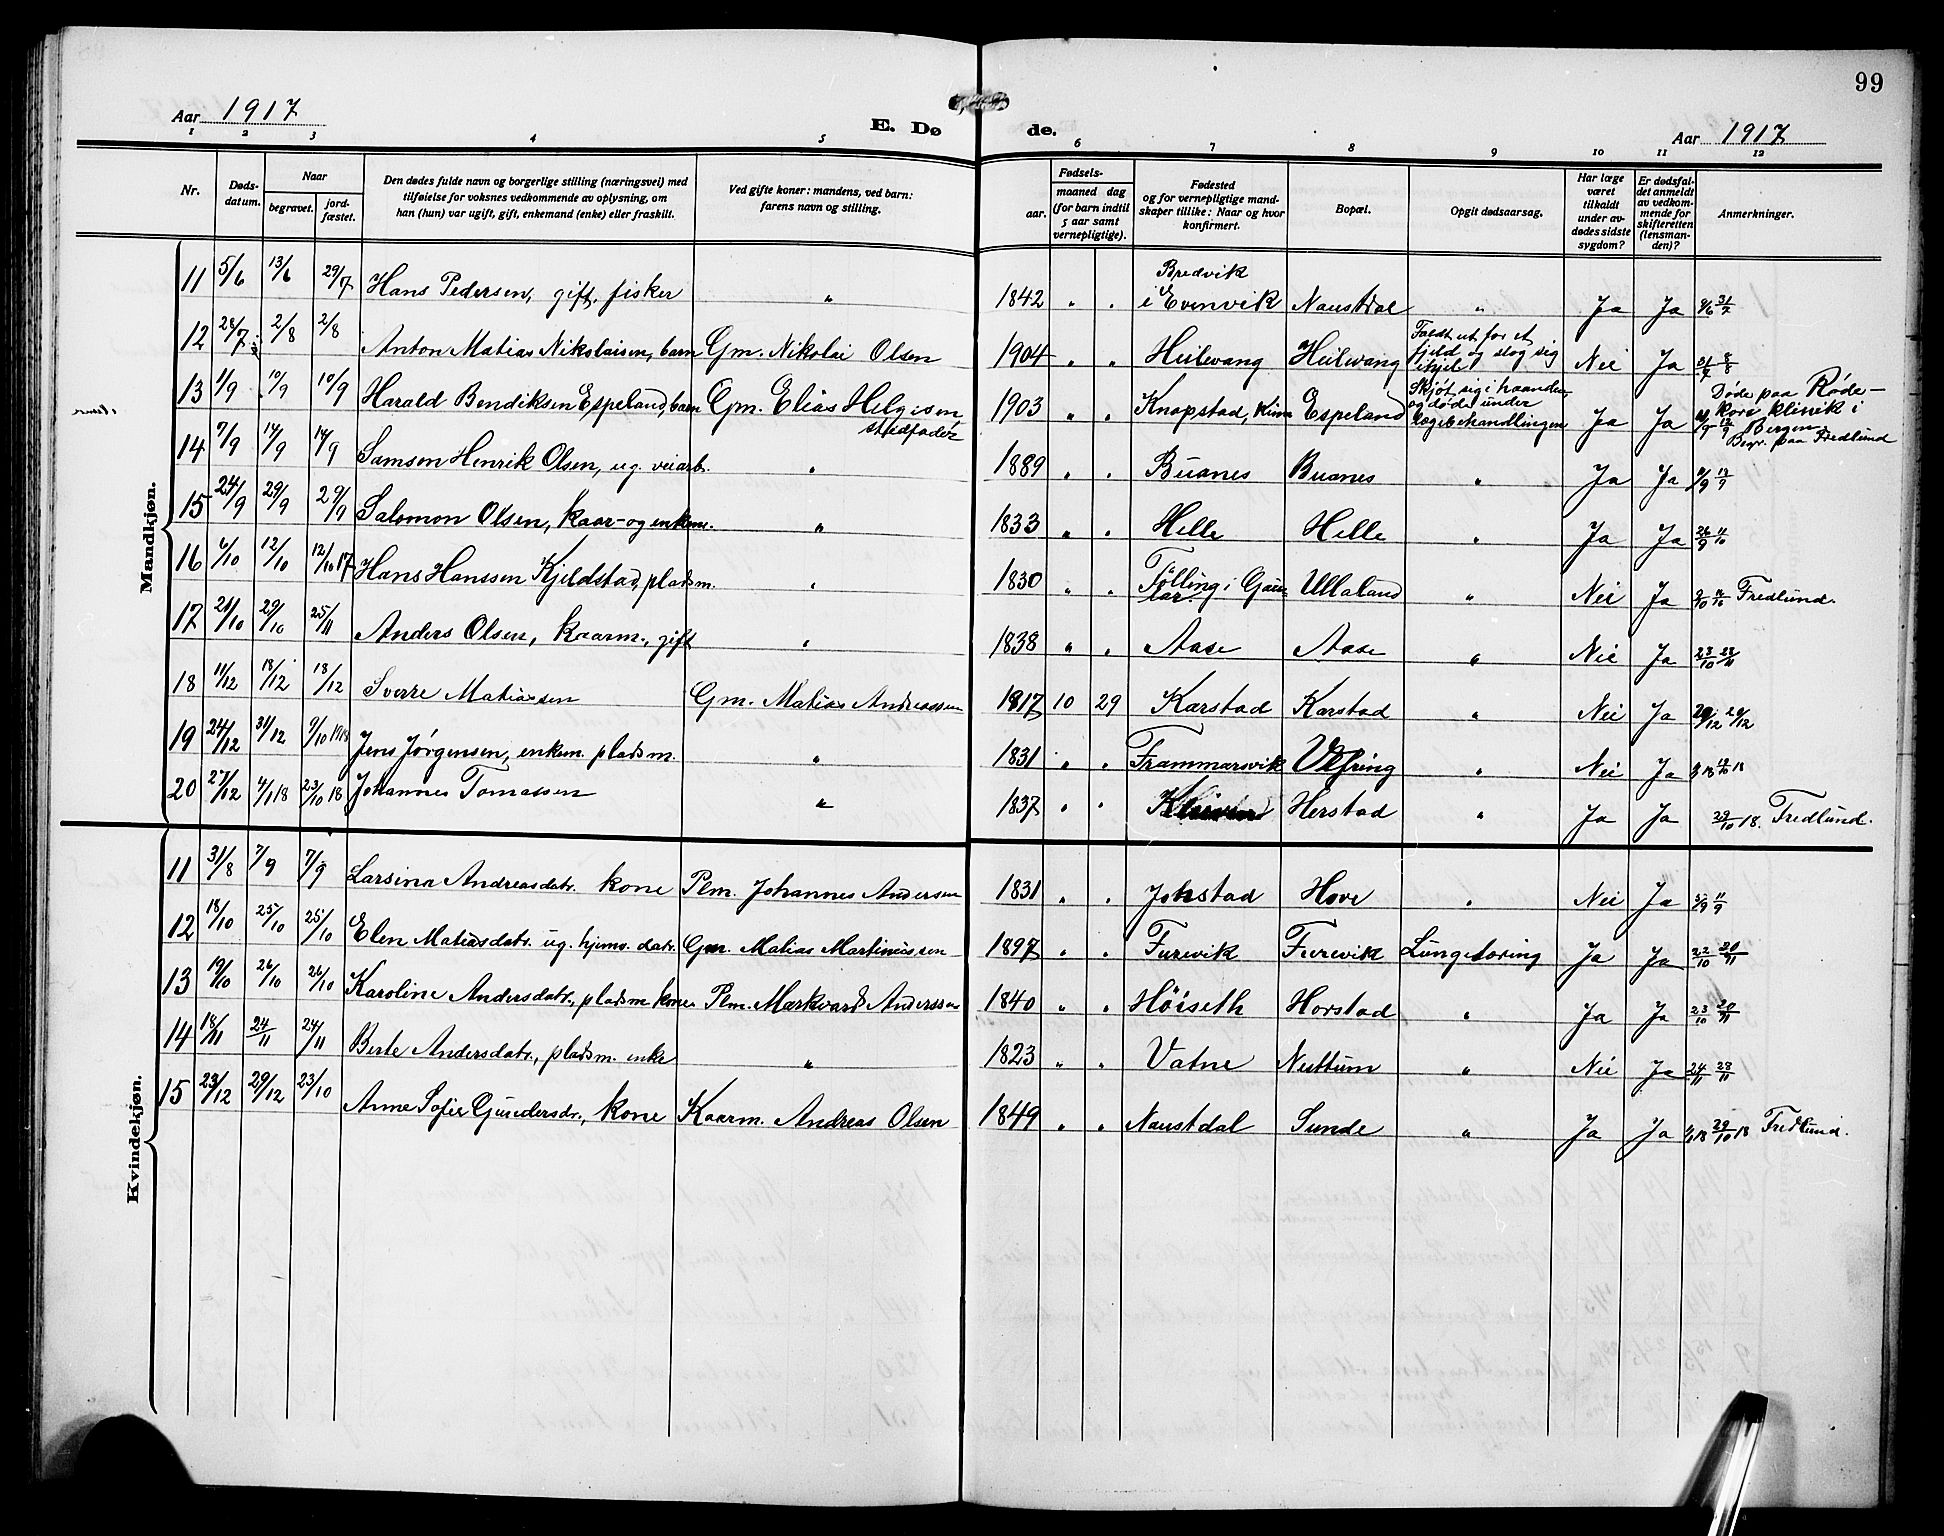 99
Aar 1917
E. Dø de.
Aar 1917
1 2 3 4 5 6 7 8 9 10 11 12
Nr.
Døds-datum.
Naar
begravet.
jord-fæstet.
Den dødes fulde navn og borgerlige stilling (næringsvei) med
tilføielse for voksnes vedkommende av oplysning, om
han (hun) var ugift, gift, enkemand (enke) eller fraskilt.
Ved gifte koner: mandens, ved barn:
farens navn og stilling.
Fødsels-
aar.
maaned dag
(for barn indtil
5 aar samt
vernepligtige).
Fødested
og for vernepligtige mand-
skaper tillike: Naar og hvor
konfirmert.
Bopæl.
Opgit dødsaarsag.
Har læge
været
tilkaldt
under av-
dødes sidste
sygdom?
Er dødsfal-
det anmeldt
av vedkom-
mende for
skifteretten
(lensman-
den)?
Anmerkninger.
Mandkjøn.
11 5/6 13/6 29/7 Hans Pedersen, gift, fisker " 1842 " " Bredvik i Evenvik Naustdal " Ja Ja 9/6 31/7
12 28/7 2/8 2/8 Anton Matias Nikolaisen, barn Gm. Nikolai Olsen 1904 " " Heilevang Heilevang Faldt ut for et fjeld og slog sig ihjel Nei Ja 31/7 8/8
13 1/9 10/9 10/9 Harald Bendiksen Espeland, barn Gm. Elias Helgesen stedfader 1903 " " Knapstad, Kinn Espeland Skjøt sig i haanden og døde under lægebehandlingen Ja Ja Døde paa Røde-kors klinik i Bergen. Begr. paa Fredlund
14 7/9 14/9 14/9 Samson Henrik Olsen, ug. veiarb. " 1889 " " Buanes Buanes " Ja Ja
15 24/9 29/9 29/9 Salomon Olsen, kaar- og enkem. " 1833 " " Helle Helle " Ja Ja 26/9 11/10
16 6/10 12/10 12/10 17 Hans Hanssen Kjeldstad, pladsm. " 1830 " " Tölling i Gaular. Ullaland " Nei Ja Fredlund.
17 21/10 29/10 25/11 Anders Olsen, kaarm., gift " 1838 " " Aase Aase " Nei Ja 23/10 28/11
18 11/12 18/12 18/12 Sverre Matiassen Gm. Matias Andreassen 1917 10 29 Karstad Karstad " Nei Ja 20/12 20/12
19 24/12 31/12 9/10 1918 Jens Jørgensen, enkem. pladsm. " 1831 " " Frammarsvik Vefring " Nei Ja
20 27/12 4/1 18 23/10 18 Johannes Tomassen " 1837 " " Herstad " Ja Ja 29/10 18. Fredlund.
Kvindekjøn.
11 31/8 7/9 7/9 Larsina Andreasdatr. kone Plm. Johannes Andersen 1831 " " Jonstad Hove " Nei Ja 5/9 11/9
12 18/10 25/10 25/10 Elen Matiasdatr. ug. hjemv. datr. Gm. Matias Martinussen 1897 " " Furevik Furevik Lungetæring Ja Ja 22/10 20/11
13 19/10 26/10 26/10 Karoline Andersdatr., pladsm. kone Plm. Markvard Anderssen 1840 " " Höiseth Horstad " Ja Ja 23/10 20/11
14 18/11 24/11 24/11 Berte Andersdatr., pladsm. enke " 1823 " " Vatne Neittum " Nei Ja 24/11 28/11
15 23/12 29/12 23/10 Anne Sofie Gundersdr., kone Kaarm. Andreas Olsen 1849 " " Naustdal Sunde " Ja Ja 29/10 18 Fredlund.